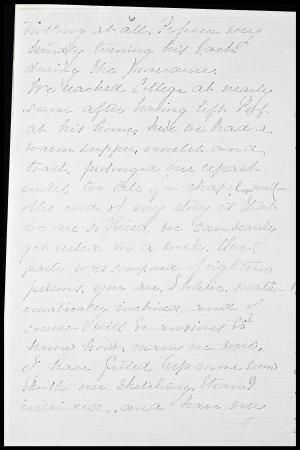 nothing at all. Professor very
kindly turning his back
during the
We reached College at nearly
seven after having left Prof.
at his home, here we had a
warm supper, omelet and
toast, prolonged our repast
until too late for chapel, and
the end of my story is that
we are so tired we can scarcely
get rested in a week. Our
party was composed of eighteen
persons, you are, I believe, math-
ematically inclined and of
course will be anxious to
know how many we were.
I have filled up more room
with our sketching than I
intended, and have